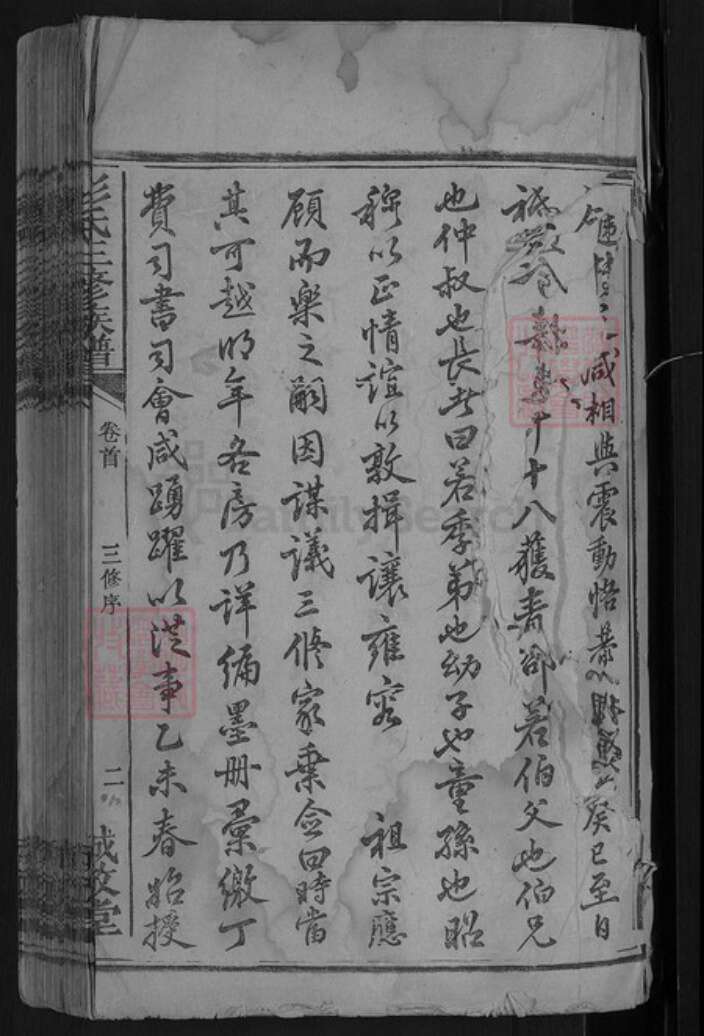 咸相與震動恪恭以 癸巳至日
十八穫青卻若伯父也伯兄
也仲叔也長者曰若季弟也幼子也童孫也昭
穆以正情誼以敦揖讓雍容 祖宗應
顧而樂之嗣因謀議三修家乗僉曰時當
其可越明年各房乃詳編墨冊彙繳丁
費司書司會咸踴躍以從事乙未春始授
彭氏三修族譜 卷首 三修序 二 敦堂
FamilySearch